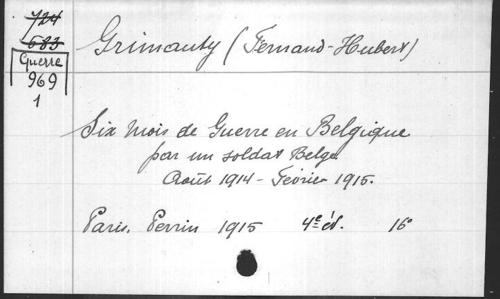 724
683
Guerre
969
1
Grimauty (Fernand-Hubert)
Six mois de Guerre en Belgique
par un soldat Belge
Août 1914 - Février 1915.
Paris, Perrin 1915 4e éd. 16°